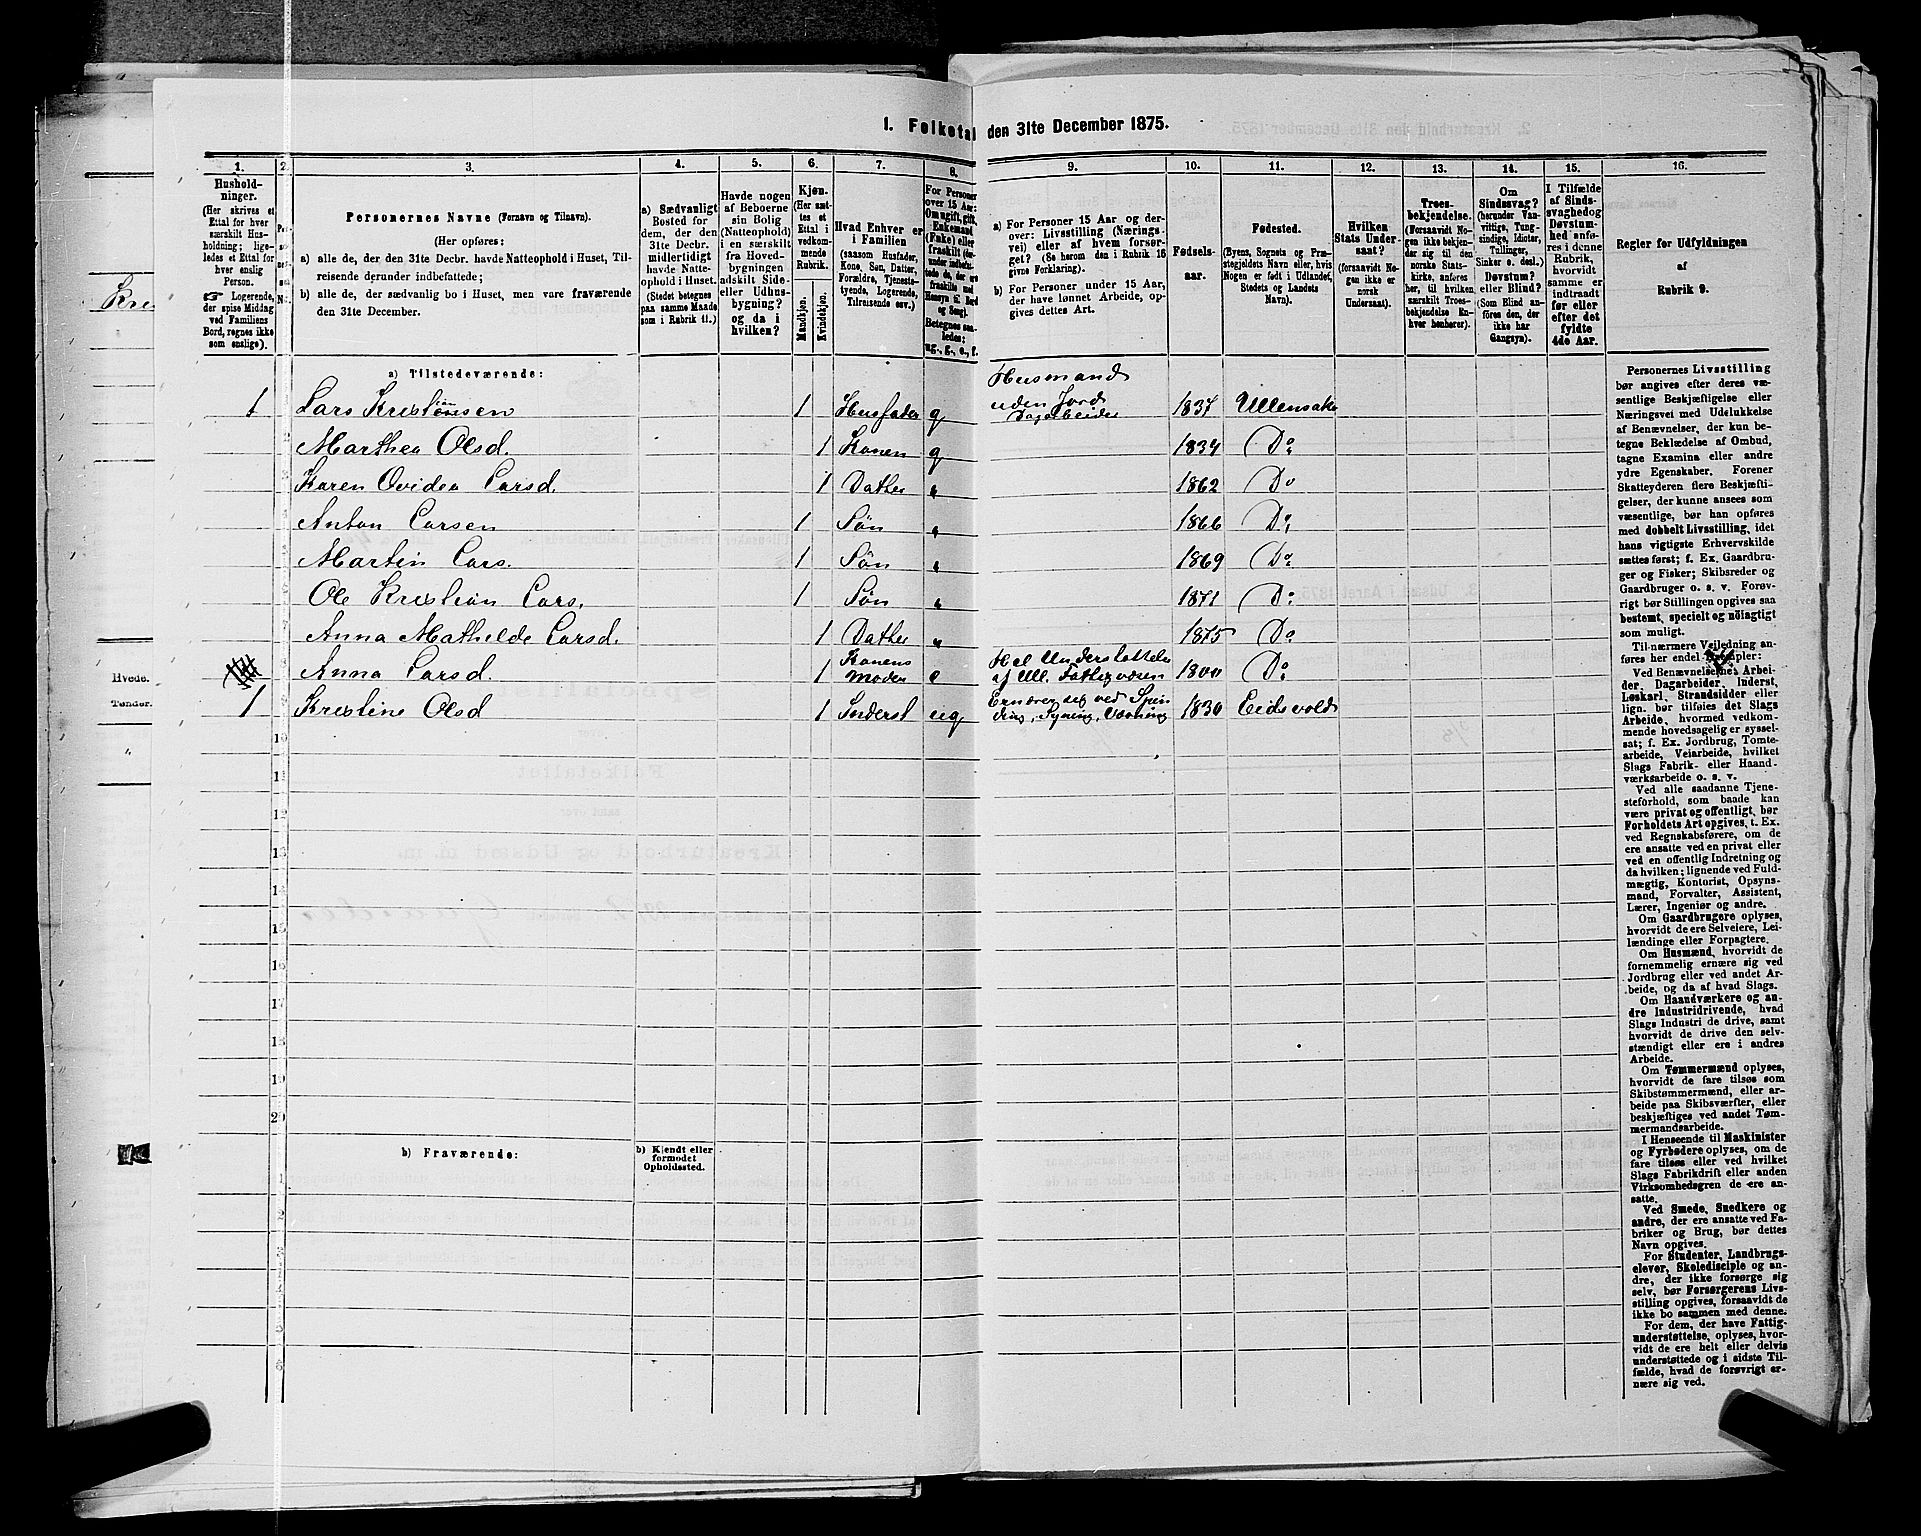 1. Folketal den 31te December 1875.
1. 2. 3. 4. 5. 6. 7. 8. 9. 10. 11. 12. 13. 14. 15. 16.
Hushold-
ninger.
(Her skrives et
Ettal for hver
særskilt Hus-
holdning; lige-
ledes et Ettal for
hver enslig
Person.
☞ Logerende,
der spise Middag
ved Familiens
Bord, regnes ikke
som enslige).
Personernes Navne (Fornavn og Tilnavn).
(Her opføres:
a) alle de, der den 31te Decbr. havde Natteophold i Huset, Til-
reisende derunder indbefattede;
b) alle de, der sædvanlig bo i Huset, men vare fraværende
den 31te December.
a) Sædvanligt
Bosted for
dem, der den
31te Decbr.
midlertidigt
havde Natte-
ophold i Huset.
(Stedet betegnes
paa samme Maade
som i Rubrik 11.)
Havde nogen
af Beboerne
sin Bolig
(Natteophold)
i en særskilt
fra Hoved-
bygningen
adskilt Side-
eller Udhus-
bygning?
og da i
hvilken?
Kjøn.
(Her sæt-
tes et
Ettal i
vedkom-
mende
Rubrik.
Mandkjøn.
Kvindekjøn.
Hvad Enhver er
i Familien
(saasom Husfader,
Kone, Søn, Datter,
Forældre, Tjeneste-
tyende, Logerende,
Tilreisende osv.)
For Personer
over 15 Aar:
Om ugift, gift,
Enkemand
(Enke) eller
fraskilt
Betegnes saa-
ledes:
ug., g., e., f.
a) For Personer 15 Aar og der-
over: Livsstilling (Nærings-
vei) eller af hvem forsør-
get? (Se herom den i Rubrik 16
givne Forklaring).
b) For Personer under 15 Aar,
der have lønnet Arbeide, op-
gives dettes Art.
Fødsels-
aar.
Fødested.
(Byens, Sognets og Præ-
stegjeldets Navn eller, hvis
Nogen er født i Udlandet,
Stedets og Landets
Navn).
Hvilken
Stats Under-
saat?
(forsaavidt No-
gen ikke er
norsk
Undersaat).
Troes-
bekjendelse.
(Forsaavidt No-
gen ikke bekjen-
der sig til den
norske Stats-
kirke, anføres
her, til hvilken
særskilt Troes-
bekjendelse En-
hver henhører).
Om
Sindssvag?
(herunder Van-
vittige, Tung-
sindige, Idioter,
Tullinger,
Sinker o. desl.)
Døvstum?
eller Blind?
(Som Blind an-
føres den, der
ikke har
Gangsyn).
I Tilfælde
af Sinds-
svaghed og
Døvstum-
hed anfø-
res i denne
Rubrik,
hvorvidt
samme er
indtraadt
før eller
efter det
fyldte
4de Aar.
Regler for Udfyldningen
af
Rubrik 9.
a) Tilstedeværende:
Husmand
1 Lars Kristiansen 1 Husfader g uden Jord 1837 Ullensaker
Dagarbeider
Marthea Olsd. 1 Konen g 1834 Do
Karen Ovidea Larsd. 1 Datter " 1862 Do
Anton Larsen 1 Søn " 1866 Do
Martin Lars. 1 Søn " 1869 Do
Ole Kristian Lars. 1 Søn " 1871 Do
Anna Mathilde Larsd. 1 Datter " 1875 Do
Anna Larsd. 1 Konens Moder e Hel Understøttelse af Ull. Fattigvæsen 1800 Do
1 Kristine Olsd 1 Inderst ug Ernærer sig ved Spinding, Syning, Vævning 1830 Eidsvold
10
11
12
13
14
15
16
17
18
19
20
b) Fraværende:
b) Kjendt eller
formodet
Opholdssted.
1
2
3
4
5
6
Personernes Livsstilling
bør angives efter deres væ-
sentlige Beskjæftigelse eller
Næringsvei med Udelukkelse
af Benævnelser, der kun be-
tegne Beklædelse af Ombud,
tagne Examina eller andre
ydre Egenskaber. Forener
Skatteyderen flere Beskjæfti-
gelser, der kunne ansees som
væsentlige, bør han opføres
med dobbelt Livsstilling, idet
hans vigtigste Erhvervskilde
sættes først; f. Ex. Gaardbru-
ger og Fisker; Skibsreder og
Gaardbruger o. s. v. Forøv-
rigt bør Stillingen opgives saa
bestemt, specielt og nøiagtigt
som muligt.
Til nærmere Veiledning an-
føres her endel Exempler:
Ved Benævnelserne Arbei-
der, Dagarbeider, Inderst,
Løskarl, Strandsidder eller
lign. bør tilføies det Slags
Arbeide, hvormed vedkom-
mende hovedsagelig er syssel-
sat; f. Ex. Jordbrug, Tomte-
arbeide, Veiarbeide, hvilket
Slags Fabrik- eller Haand-
værksarbeide o. s. v.
Ved alle saadanne Tjene-
steforhold, som baade kan
være privat og offentligt, bør
Forholdets Art opgives, t. Ex.
ved Regnskabsførere, om de
ere ansatte ved en privat eller
ved en offentlig Indretning og
da hvilken; lignende ved Fuld-
mægtig, Kontorist, Opsyns-
mand, Forvalter, Assistent,
Lærer, Ingeniør og andre.
Om Gaardbrugere oplyses,
hvorvidt de ere Selveiere, Lei-
lændinge eller Forpagtere.
Om Husmænd, hvorvidt de
fornemmelig ernære sig ved
Jordbrug eller ved andet Ar-
beide, og da af hvad Slags.
Om Haandværkere og an-
dre Industridrivende, hvad
Slags Industri de drive, samt
hvorvidt de drive den selv-
stændigt eller ere i andres
Arbeide.
Om Tømmermænd oplyses,
hvorvidt de fare tilsøs som
Skibstømmermænd, eller ar-
beide paa Skibsværfter, eller
beskjæftiges ved andet Tøm-
mermandsarbeide.
I Henseende til Maskinister
og Fyrbødere oplyses, om de
fare tilsøs eller ved hvilket
Slags Fabrikdrift eller anden
Virksomhedsgren de ere an-
satte.
Ved Smede, Snedkere og
andre, der ere ansatte ved Fa-
briker og Brug, bør dettes
Navn opgives.
For Studenter, Landbrugs-
elever, Skoledisciple og an-
dre, der ikke forsørge sig
selv, bør Forsørgerens Livs-
stilling opgives, forsaavidt de
ikke bo sammen med denne.
For dem, der have Fattig-
understøttelse, oplyses, hvor-
vidt de ere helt eller delvis
understøttede og i sidste Til-
fælde, hvad de forøvrigt er-
nære sig ved.
Hvede.
Tønder.